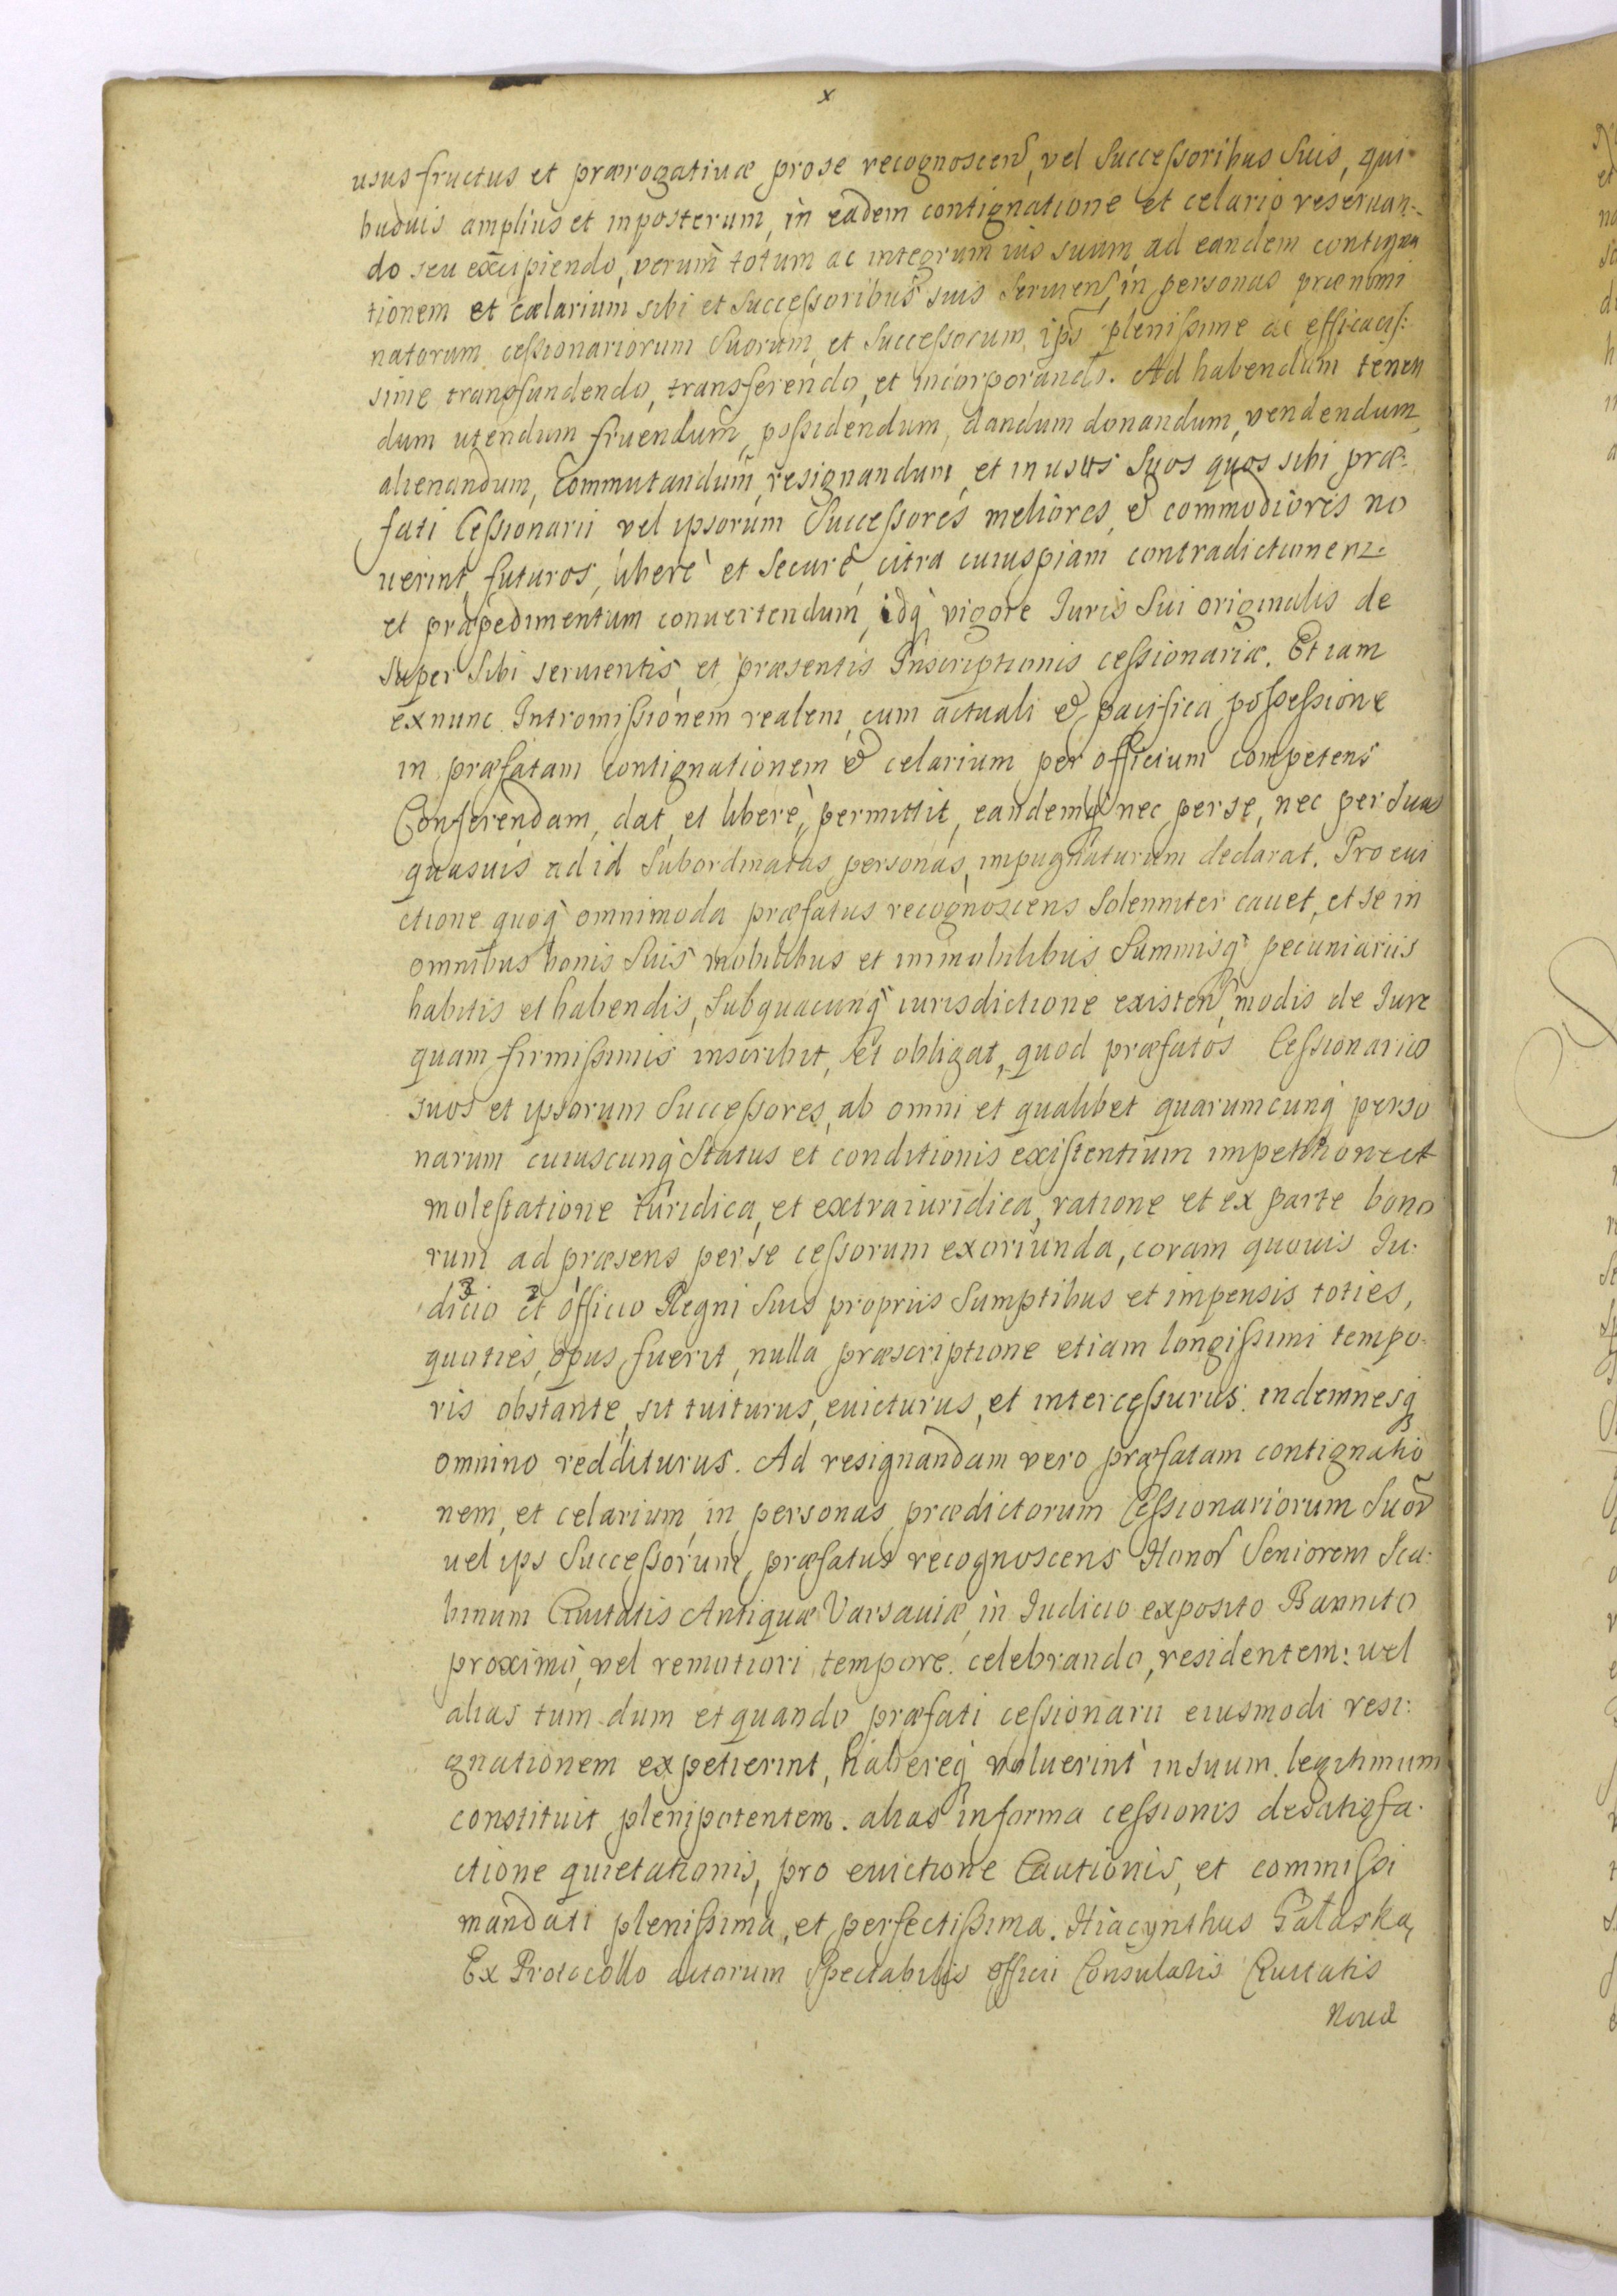 x
ususfructus et prærogativæ pro se recognoscens, vel Successoribus Suis, qui-
busvis amplius et inposterum, in eadem contignatione et celario reservan-
do seu excipiendo, verum totum ac integrum ius suum, ad eandem contigna
tionem et cælarium sibi et Successoribus suis Serviens, in personas prænomi
natorum cessionariorum Suorum, et Successorum ips plenissime ac efficacis:
sime transfundendo, transferendo, et incorporando. Ad habendum tenen
dum utendum fruendum, possidendum, dandum donandum, vendendum,
alienandum, Commutandum, resignandum, et in usus Suos quos sibi præ-
fati Cessionarii vel ipsorum Successores meliores & commodiores no
verint futuros, liberè et Securè, citra cuiuspiam contradictionem
et præpedimentum convertendum, idq vigore Iuris Sui originalis de
super Sibi servientis, et præsentis Inscriptionis cessionariæ. Et iam
exnunc Intromissionem realem, cum actuali & pacifica possessione
in præfatam contignationem & celarium per officium competens
Conferendam, dat, et liberè, permittit, eandemq nec per se, nec per Suas
quasvis ad id Subordinatas personas, impugnaturum declarat. Pro evi
ctione quoq omnimoda præfatus recognoscens Solenniter cavet, et se in
omnibus bonis Suis mobilibus et immobilibus Summisq pecuniariis
habitis et habendis, Subquacunq iurisdictione existen, modis de Iure
quam firmissimis inscribit, et obligat, quod præfatos Cessionarios
suos et ipsorum Successores, ab omni et qualibet quarumcunq perso
narum cuiuscunq Status et conditionis existentium impetitione et
molestatione iuridica, et extraiuridica, ratione et ex parte bono
rum ad præsens per se cessorum exoriunda, coram quovis Iu:
dicio et officio Regni Suis propriis Sumptibus et impensis toties,
quoties, opus fuerit, nulla præscriptione etiam longissimi tempo-
ris obstante, sit tuiturus, evicturus, et intercessurus. indemnesq
omnino redditurus. Ad resignandam vero præfatam contignatio
nem, et celarium, in personas prædictorum Cessionariorum Suor
vel ips Successorum, præfatus recognoscens Honor Seniorem Sca:
binum Civitatis Antiquæ Varsaviæ, in Iudicio exposito Bannito
proximo, vel remotiori tempore celebrando, residentem: vel
alias tum dum et quando præfati cessionarii eiusmodi resi:
gnationem expetierint, habereq voluerint in suum legitimum
constituit plenipotentem. alias in forma cessionis de satisfa-
ctione quietationis, pro evictione Cautionis, et commissi
mandati plenissima, et perfectissima. Hiacynthus Gałaska,
Ex Protocollo actorum Spectabilis officii Consularis Civitatis
Novæ